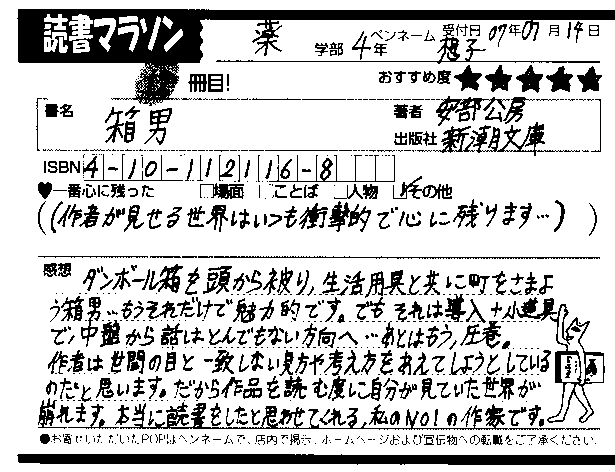 読書マラソン
薬 学部 4年 ペンネーム 想子 受付日 07年07月14日
冊目!
おすすめ度 ★★★★★
書名 箱男
著者 安部公房
出版社 新潮文庫
ISBN 4-10-112116-8
♥一番心に残った □場面 □ことば □人物 ☑その他
((作者が見せる世界はいつも衝撃的で心に残ります…))
感想 ダンボール箱を頭から被り、生活用具と共に町をさまよ
う箱男…もうそれだけで魅力的です。でもそれは導入+小道具
で、中盤から話はとんでもない方向へ…あとはもう、圧巻。
作者は世間の目と一致しない見方や考え方をあえてしようとしている
のだと思います。だから作品を読む度に自分が見ていた世界が
崩れます。本当に読書をしたと思わせてくれる、私のNO1の作家です。
●お寄せいただいたPOPはペンネームで、店内で掲示、ホームページおよび宣伝物への転載をご了承ください。